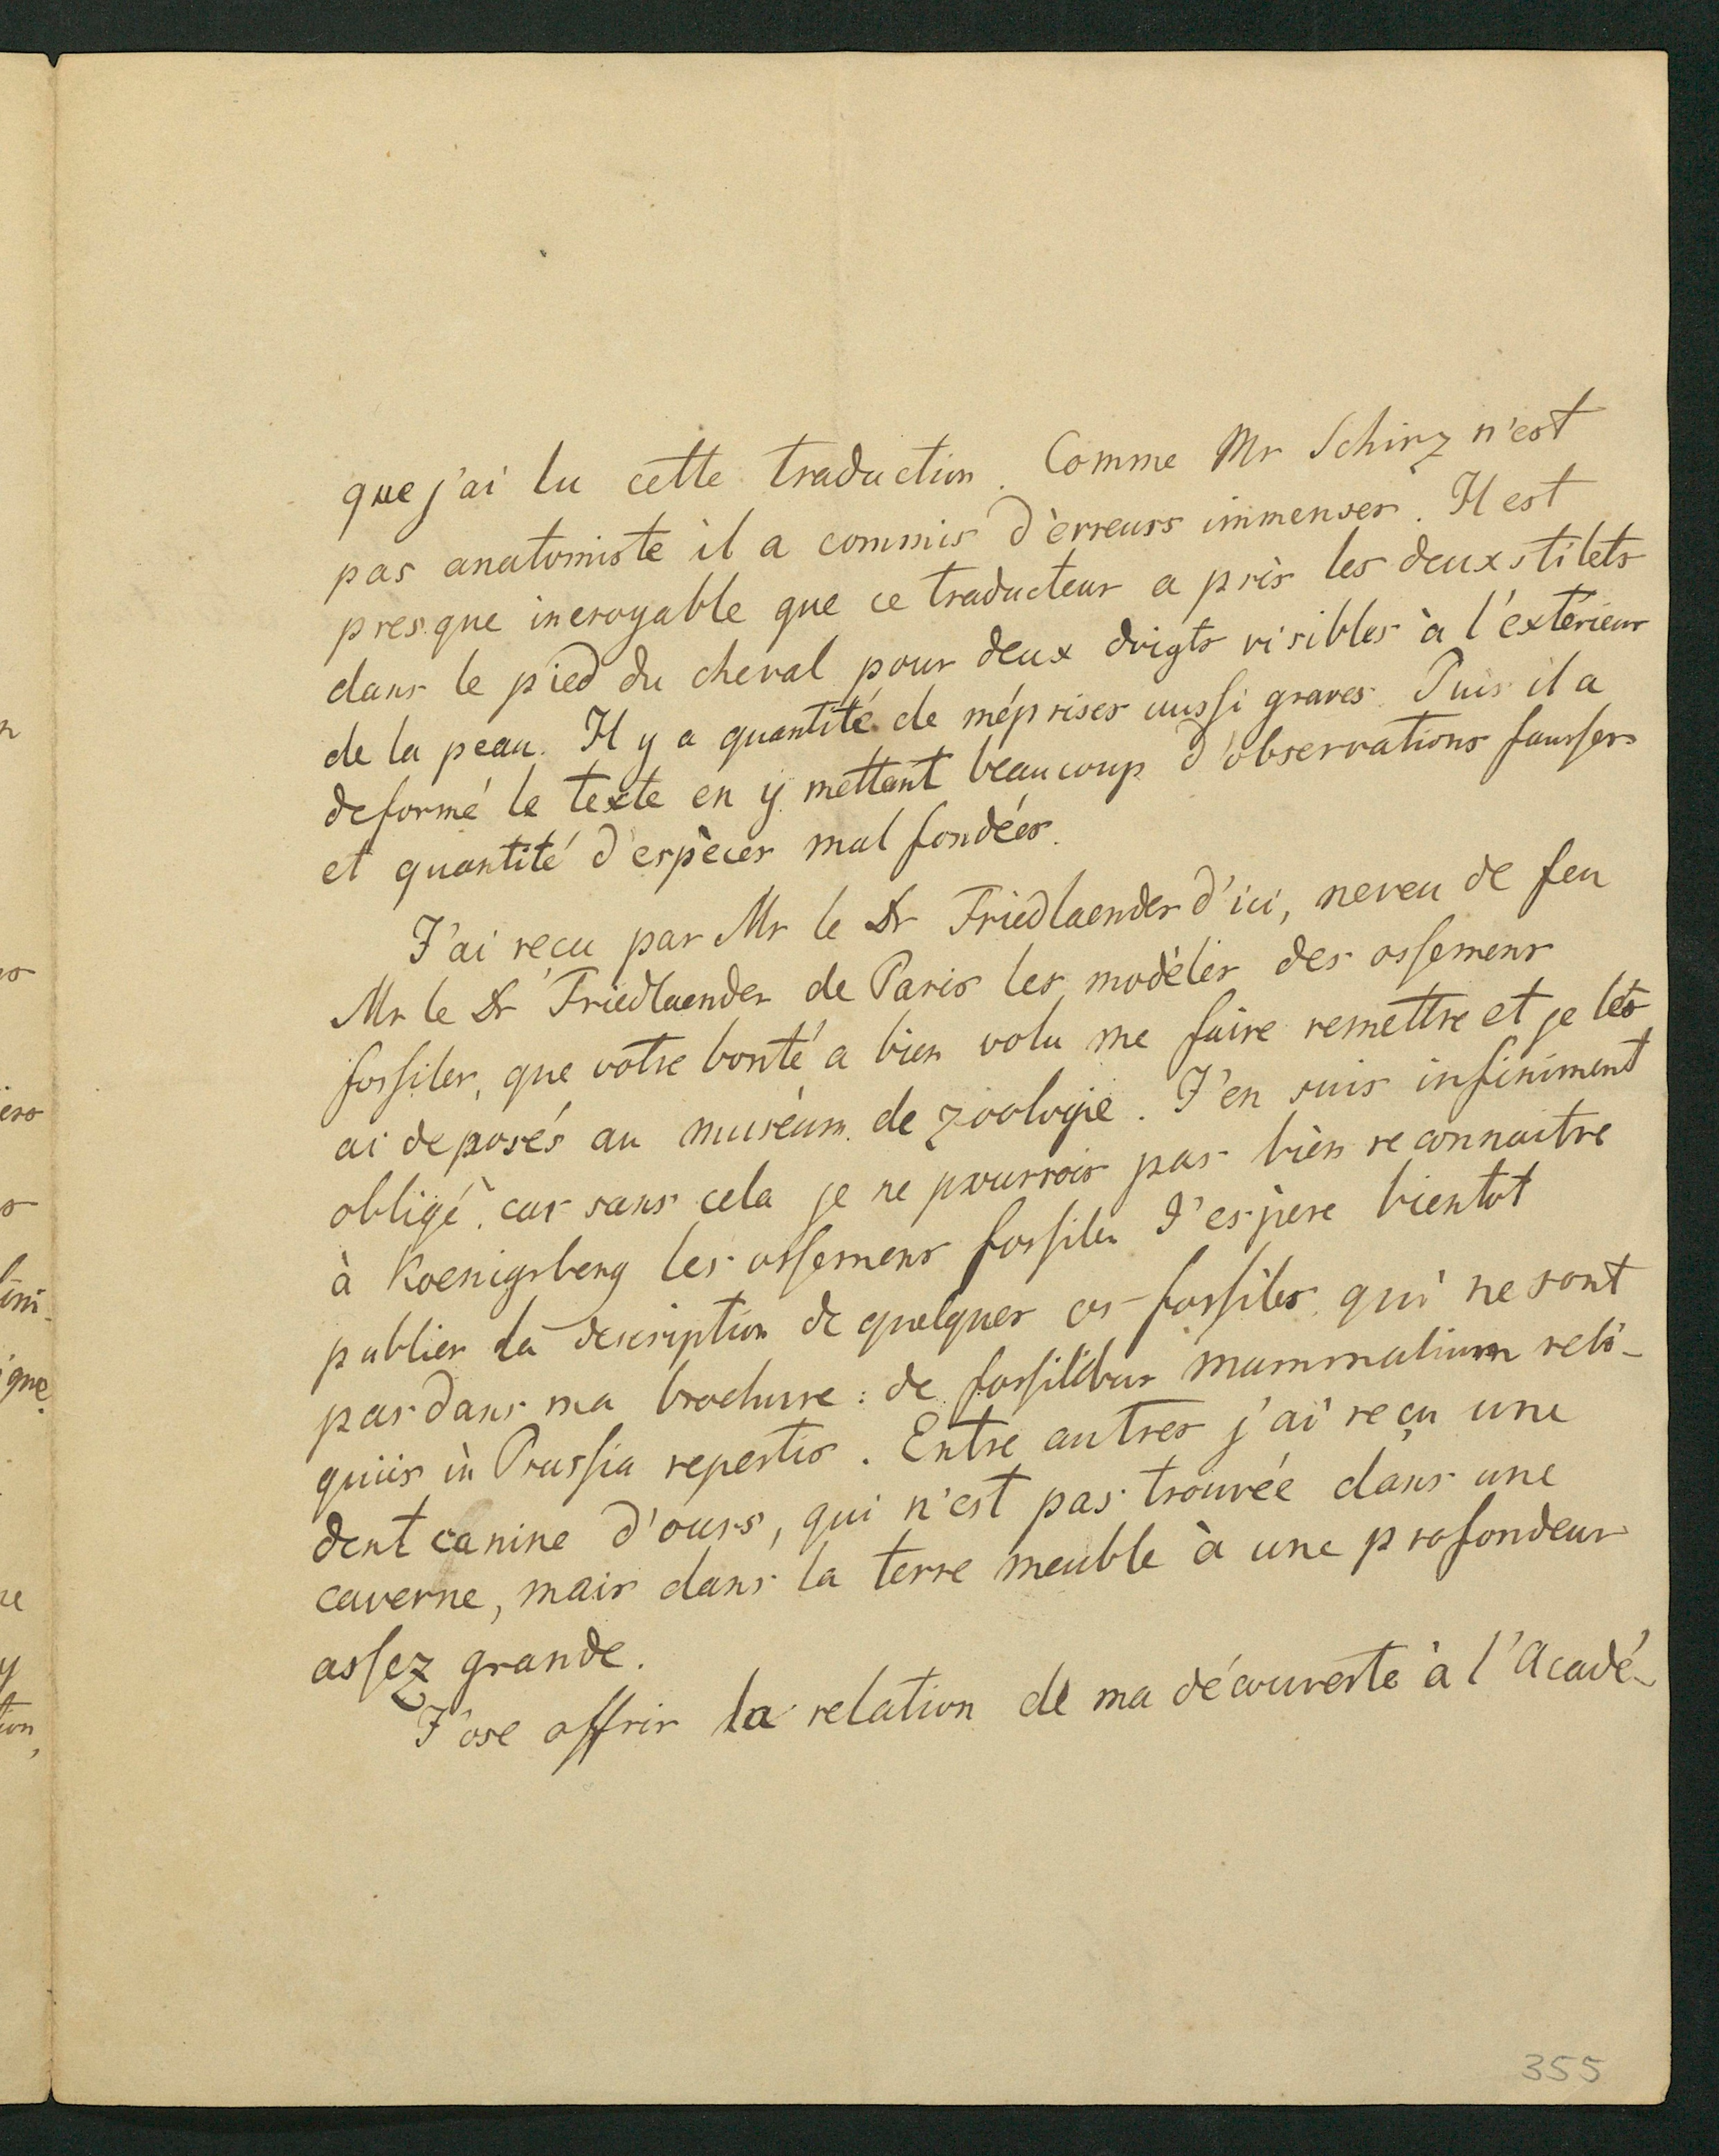 que j'ai lu cette traduction. Comme Mr Schinz n'est
pas anatomiste il a commis d'èrreurs immenses. Il est
presque incroyable que ce traducteur a pris les deux stilets
dans le pied du cheval pour deux doigts visibles à l'éxtérieur
de la peau. Il y a quantité de méprises aussi graves. Puis il a
deformé le texte en y mettant beaucoup d'observations fausses
et quantité d'espèces mal fondées.
J'ai reçu par Mr le Dr Friedlaender d'ici, neveu de feu
Mr le Dr Friedlaender de Paris les modèles des ossemens
fossiles, que votre bonté a bien volu me faire remettre et je les
ai deposés au muséum de zoologie. J'en suis infiniment
obligé, car sans cela je ne pourrois pas bien reconnaitre
à Koenigsberg les ossemens fossiles J'espère bientot
publier la description de quelques os fossiles qui ne sont
pas dans ma brochure: de fossilibus mammalium reli-
quiis in Prussia repertis. Entre autres j'ai reçu une
dent canine d'ours, qui n'est pas trouvée dans une
caverne, mais dans la terre meuble à une profondeur
assez grande.
J'ose offrir la relation de ma découverte à l'Acadé-
355
n
ero
s
ini-
ique
ne
y
tion,